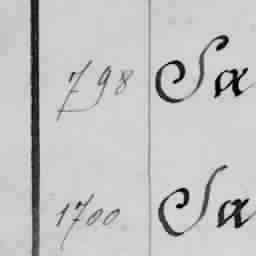 798 Sa
1700 Sa